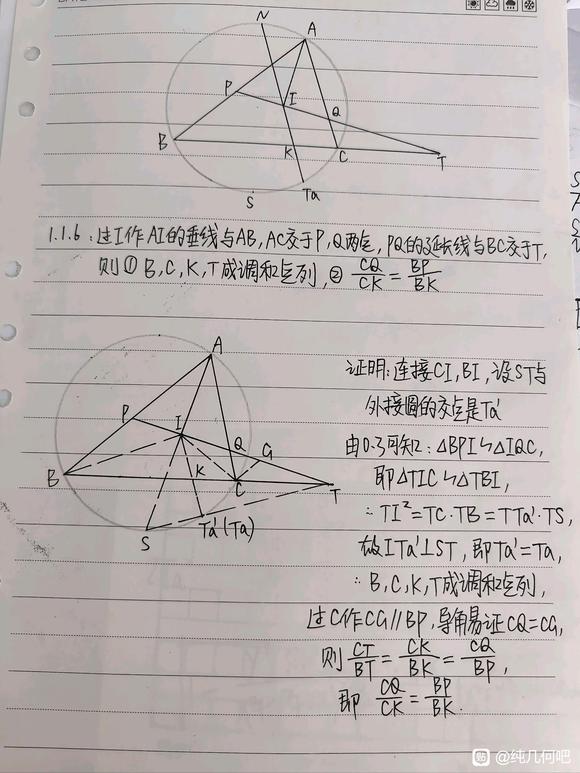 N
A
P
I
Q
B
K
C
T
S
Ta
1.1.6:过I作AI的垂线与AB,AC交于P,Q两点,PQ的延长线与BC交于T,
则① B,C,K,T成调和点列,② CQ/CK = BP/BK
A
P
I
Q
G
B
K
C
T
S
Ta'(Ta)
证明:连接CI,BI,设ST与
外接圆的交点是Ta'
由0.3可知:△BPI∽△IQC,
即△TIC∽△TBI,
∴TI²=TC·TB=TTa'·TS,
故ITa'⊥ST,即Ta'=Ta,
∴B,C,K,T成调和点列,
过C作CG∥BP,导角易证CQ=CG,
则 CT/BT = CK/BK = CQ/BP,
即 CQ/CK = BP/BK.
贴 @纯几何吧